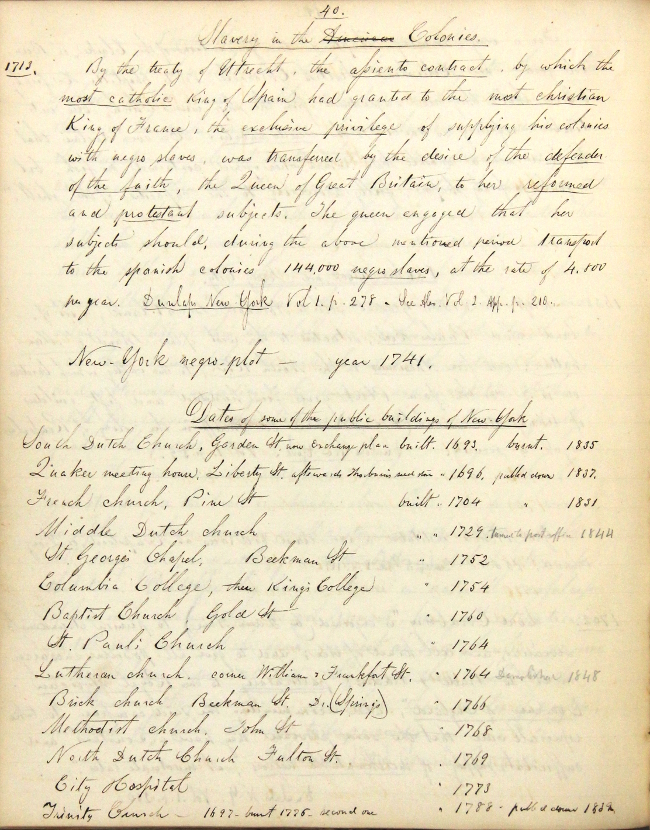 40.
Slavery in the American Colonies.
1713. By the treaty of Utrecht, the assiento contract, by which the
most catholic King of Spain had granted to the most christian
King of France, the exclusive privilege of supplying his colonies
with negro slaves, was transferred by the desire of the defender
of the faith, the Queen of Great Britain, to her reformed
and protestant subjects. The queen engaged that her
subjects should, during the above mentioned period transport
to the spanish colonies 144,000 negro slaves, at the rate of 4,800
per year. Dunlap New York Vol 1. p. 278. See also Vol 2. App. p. 210.
New-York negro-plot — year 1741.
Dates of some of the public buildings of New-York
South Dutch Church, Garden St. now Exchange place built. 1693. burnt. 1835
Quaker meeting house, Liberty St. afterwards " 1696, pulled down 1837.
French church, Pine St built. 1704 " 1831
Middle Dutch church " " 1729. turned to post office 1844
St. George's Chapel, Beekman St " 1752
Columbia College, then King's College " 1754
Baptist Church Gold St " 1760
St. Paul's Church " 1764
Lutheran church. corner William & Frankfort St. " 1764 1848
Brick church Beekman St. Dr. (Spring) " 1766
Methodist church. John St " 1768
North Dutch Church Fulton St. " 1769
City Hospital " 1773
Trinity Church — 1697 - burnt 1776 - second one " 1788 - pulled down 1839